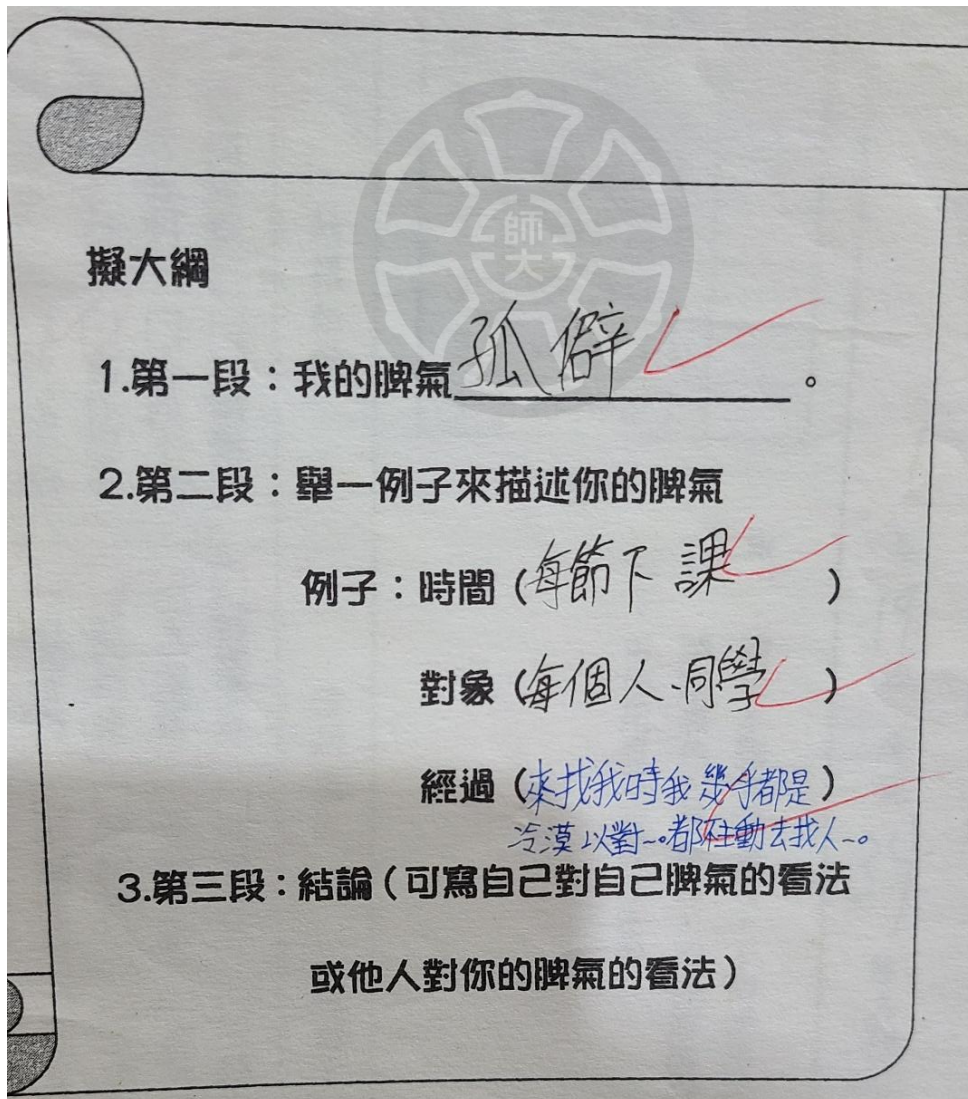 師大
擬大綱
1.第一段：我的脾氣孤僻。
2.第二段：舉一例子來描述你的脾氣
例子：時間（每節下課）
對象（每個人、同學）
經過（來找我時我幾乎都是）
冷漠以對~。都不主動去找人~。
3.第三段：結論（可寫自己對自己脾氣的看法
或他人對你的脾氣的看法）